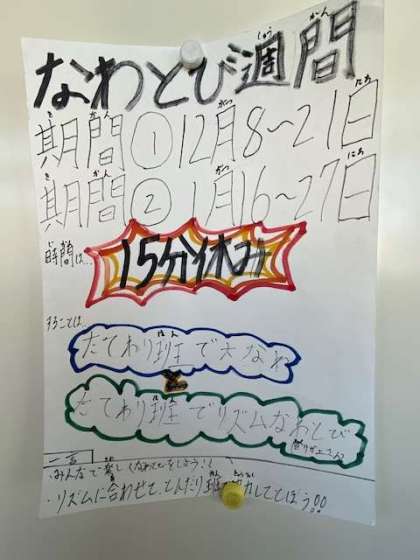 なわとび週間
期間①12月8～21日
期間②1月16～27日
時間は…
15分休み
するこては
たてわり班で大なわ
と
たてわり班でリズムなわとび
一言
・みんなで楽しくなわとびをしよう!!
・リズムに合わせて、とんだり班で協力してとぼう!!